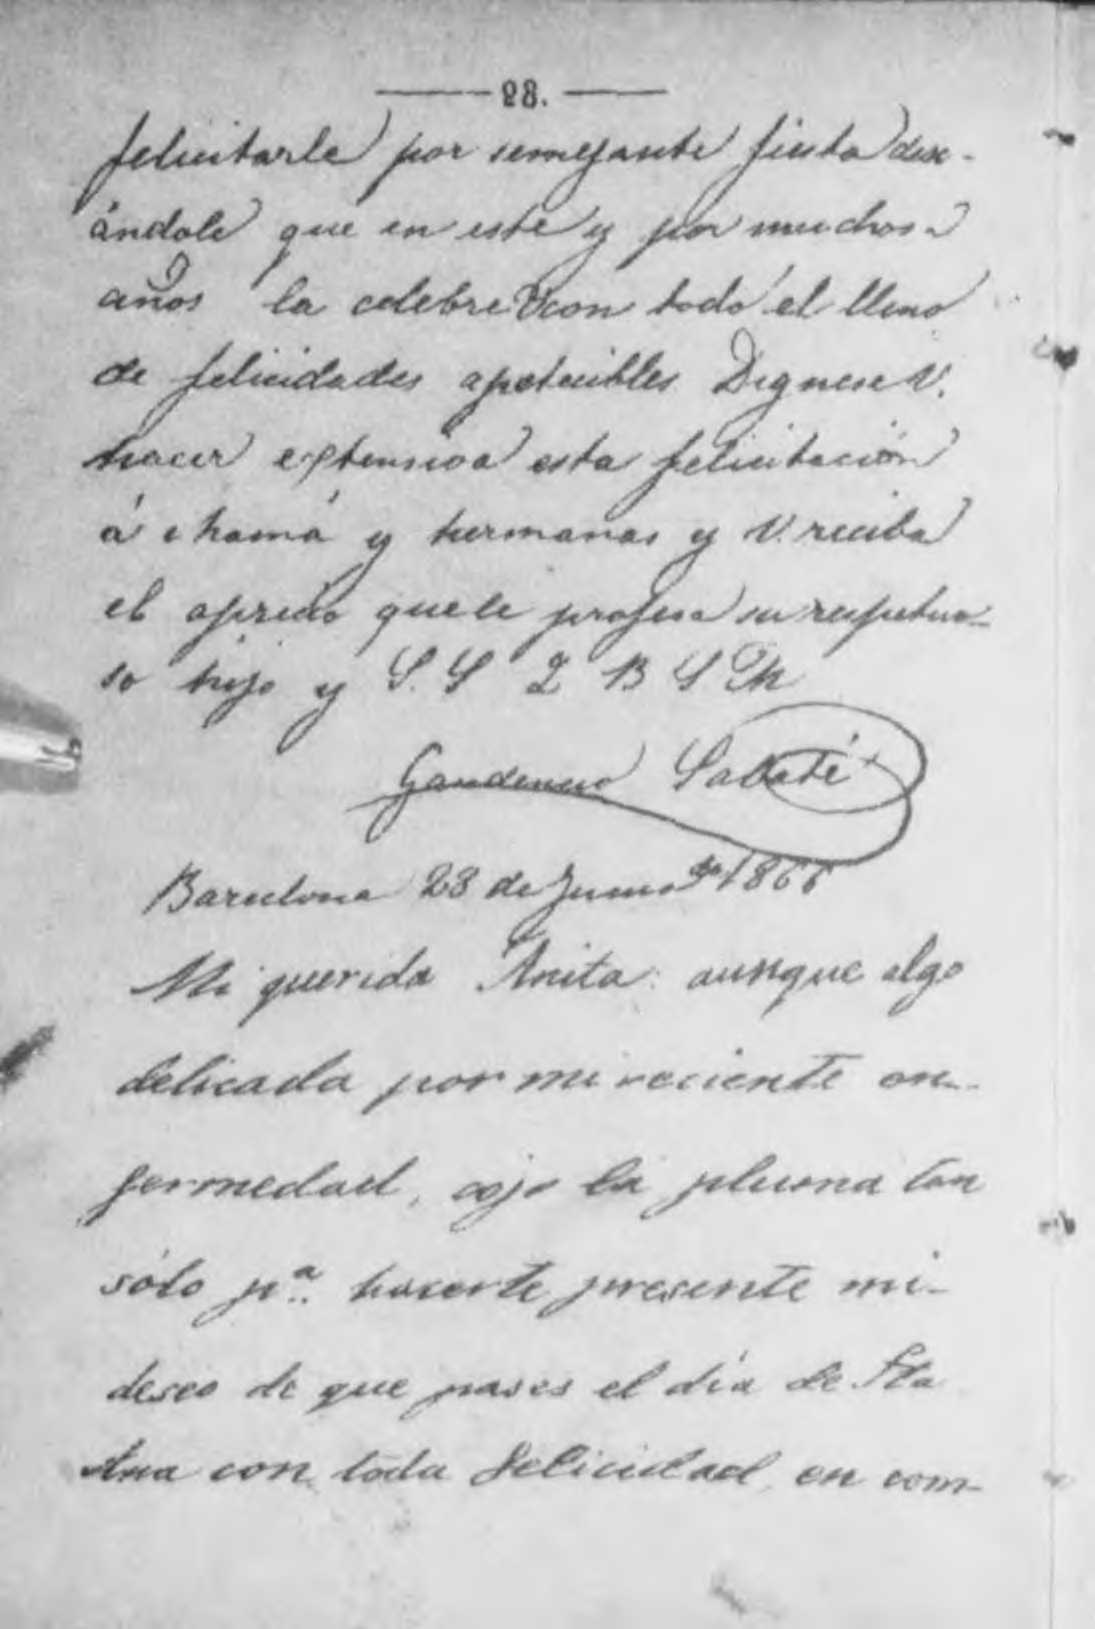 28.
felicitarle por semejante fiesta dese-
ándole que en este y por muchos
años la celebre V con todo el lleno
de felicidades apetecibles Dignese V.
hacer extensiva esta felicitación
á Mamá y hermanas y V. reciba
el aprecio que le profesa su respetuo-
so hijo y S. S Q B S M
Gaudencio Sabaté
Barcelona 28 de Junio de 1866
Mi querida Anita: aunque algo
delicada por mi reciente en-
fermedad, cojo la pluma tan
sólo pª. hacerte presente mi-
deseo de que pases el día de Sta
Ana con toda felicidad, en com-